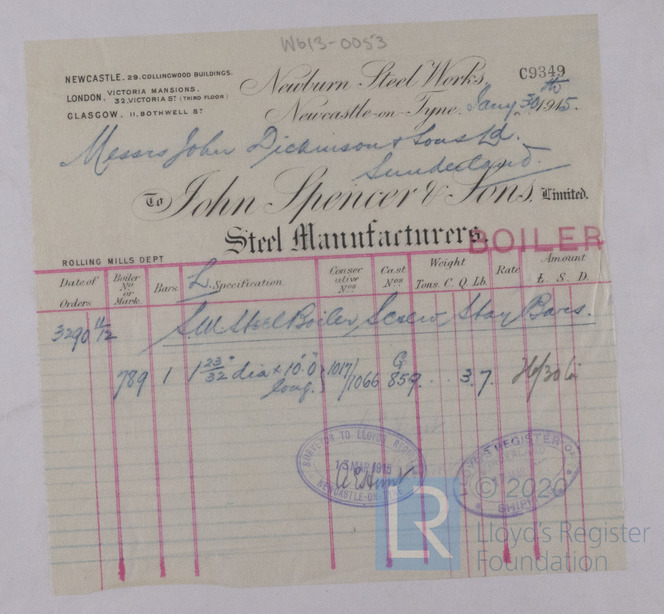 W613-0053
NEWCASTLE. 29. COLLINGWOOD BUILDINGS.
LONDON, VICTORIA MANSIONS.
32, VICTORIA ST (THIRD FLOOR)
GLASGOW. 11, BOTHWELL ST
Newburn Steel Works,
C9349
Newcastle-on-Tyne. Jany 30th 1915.
Messrs John Dickinson & Sons Ld.
Sunderland.
To John Spencer & Sons, Limited.
Steel Manufacturers.
BOILER
ROLLING MILLS DEPT
Date of Orders
Boiler No or Mark
Bars
L. Specification.
Consecutive Nos
Cast Nos
Weight Tons. C. Q. Lb.
Rate
Amount £. S. D.
3290 11/12 S.M. Steel Boiler Screw Stay Bars.
789 1 1 23/32" dia x 10'.0" long. 1017/1066 G 859 . . 3. 7.
SURVEYOR TO LLOYDS REG
13 MAR 1915
NEWCASTLE-ON-TYNE
LLOYD'S REGISTER OF
SHIP
© 2020
LR
Lloyd's Register
Foundation